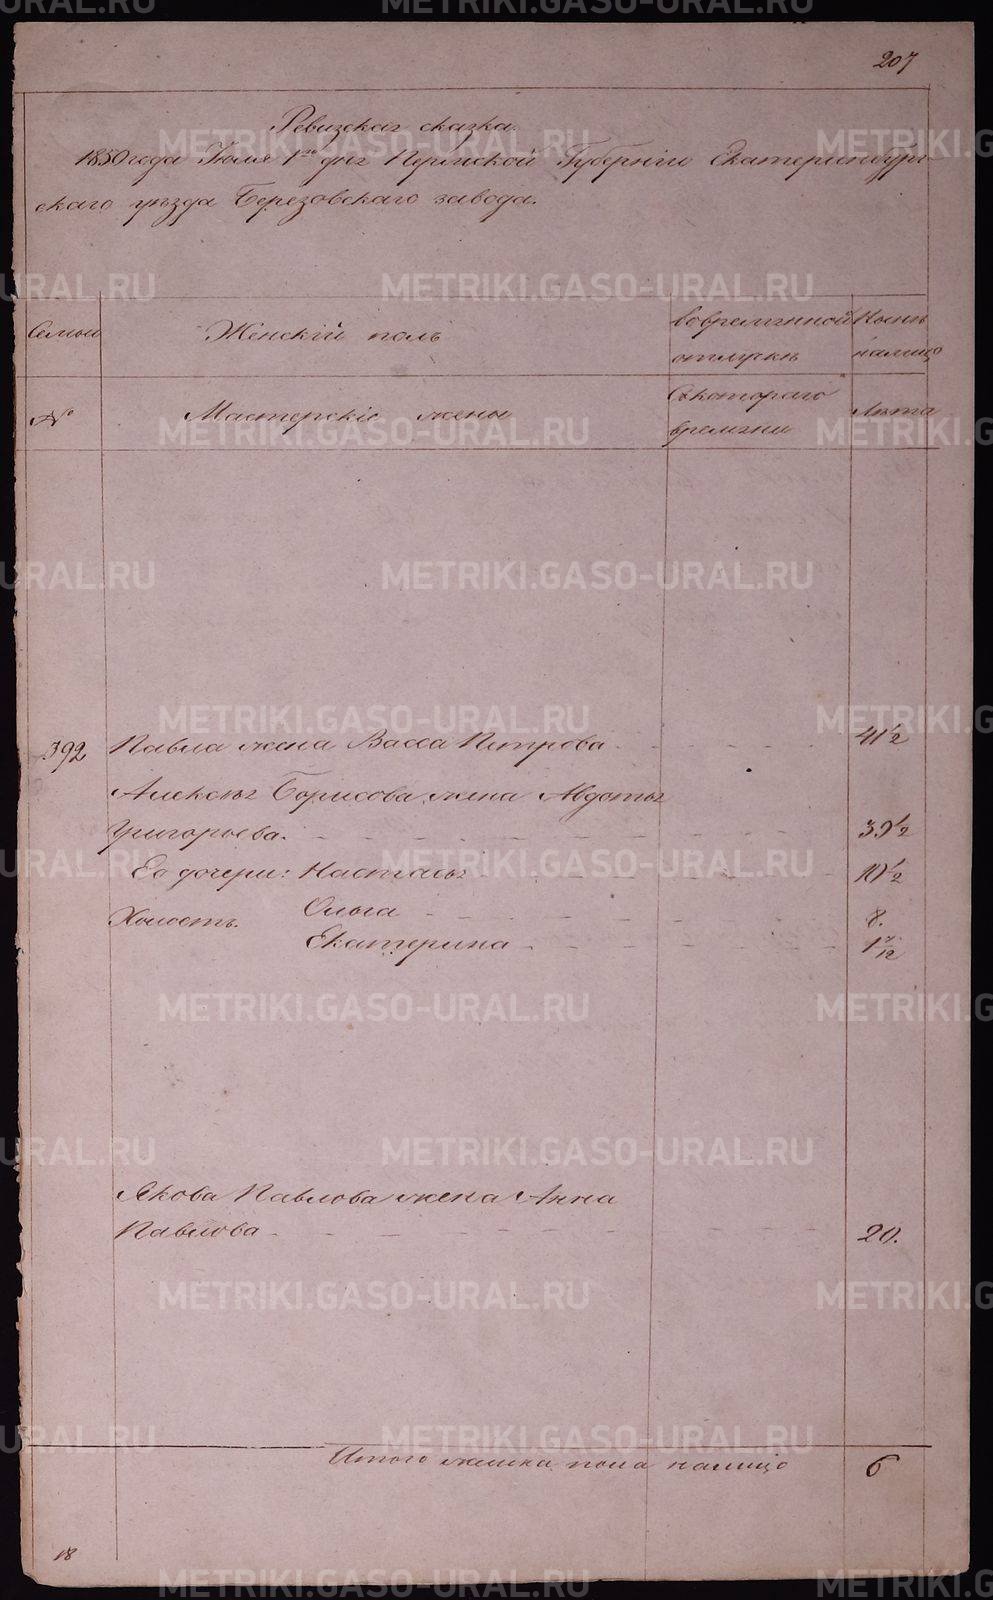 207
Ревизская сказка.
1850 года Июля 1го дня Пермской Губернiи Екатеринбург-
скаго уѣзда Березовскаго завода.
Семьи
Женскiй полъ
Во временной отлучкѣ
Нынѣ на лицо
№
Мастерскiе жены
Съ котораго времени
Лѣта
392 Павла жена Васса Петрова 41 1/2
Алексѣя Борисова жена Авдотья
Григорьева. 39 1/2
Ее дочери: Настасья 10 1/2
Холостъ. Ольга 8.
Екатерина 1 7/12
Якова Павлова жена Анна
Павлова 20.
Итого женска пола налицо 6
18
METRIKI.GASO-URAL.RU